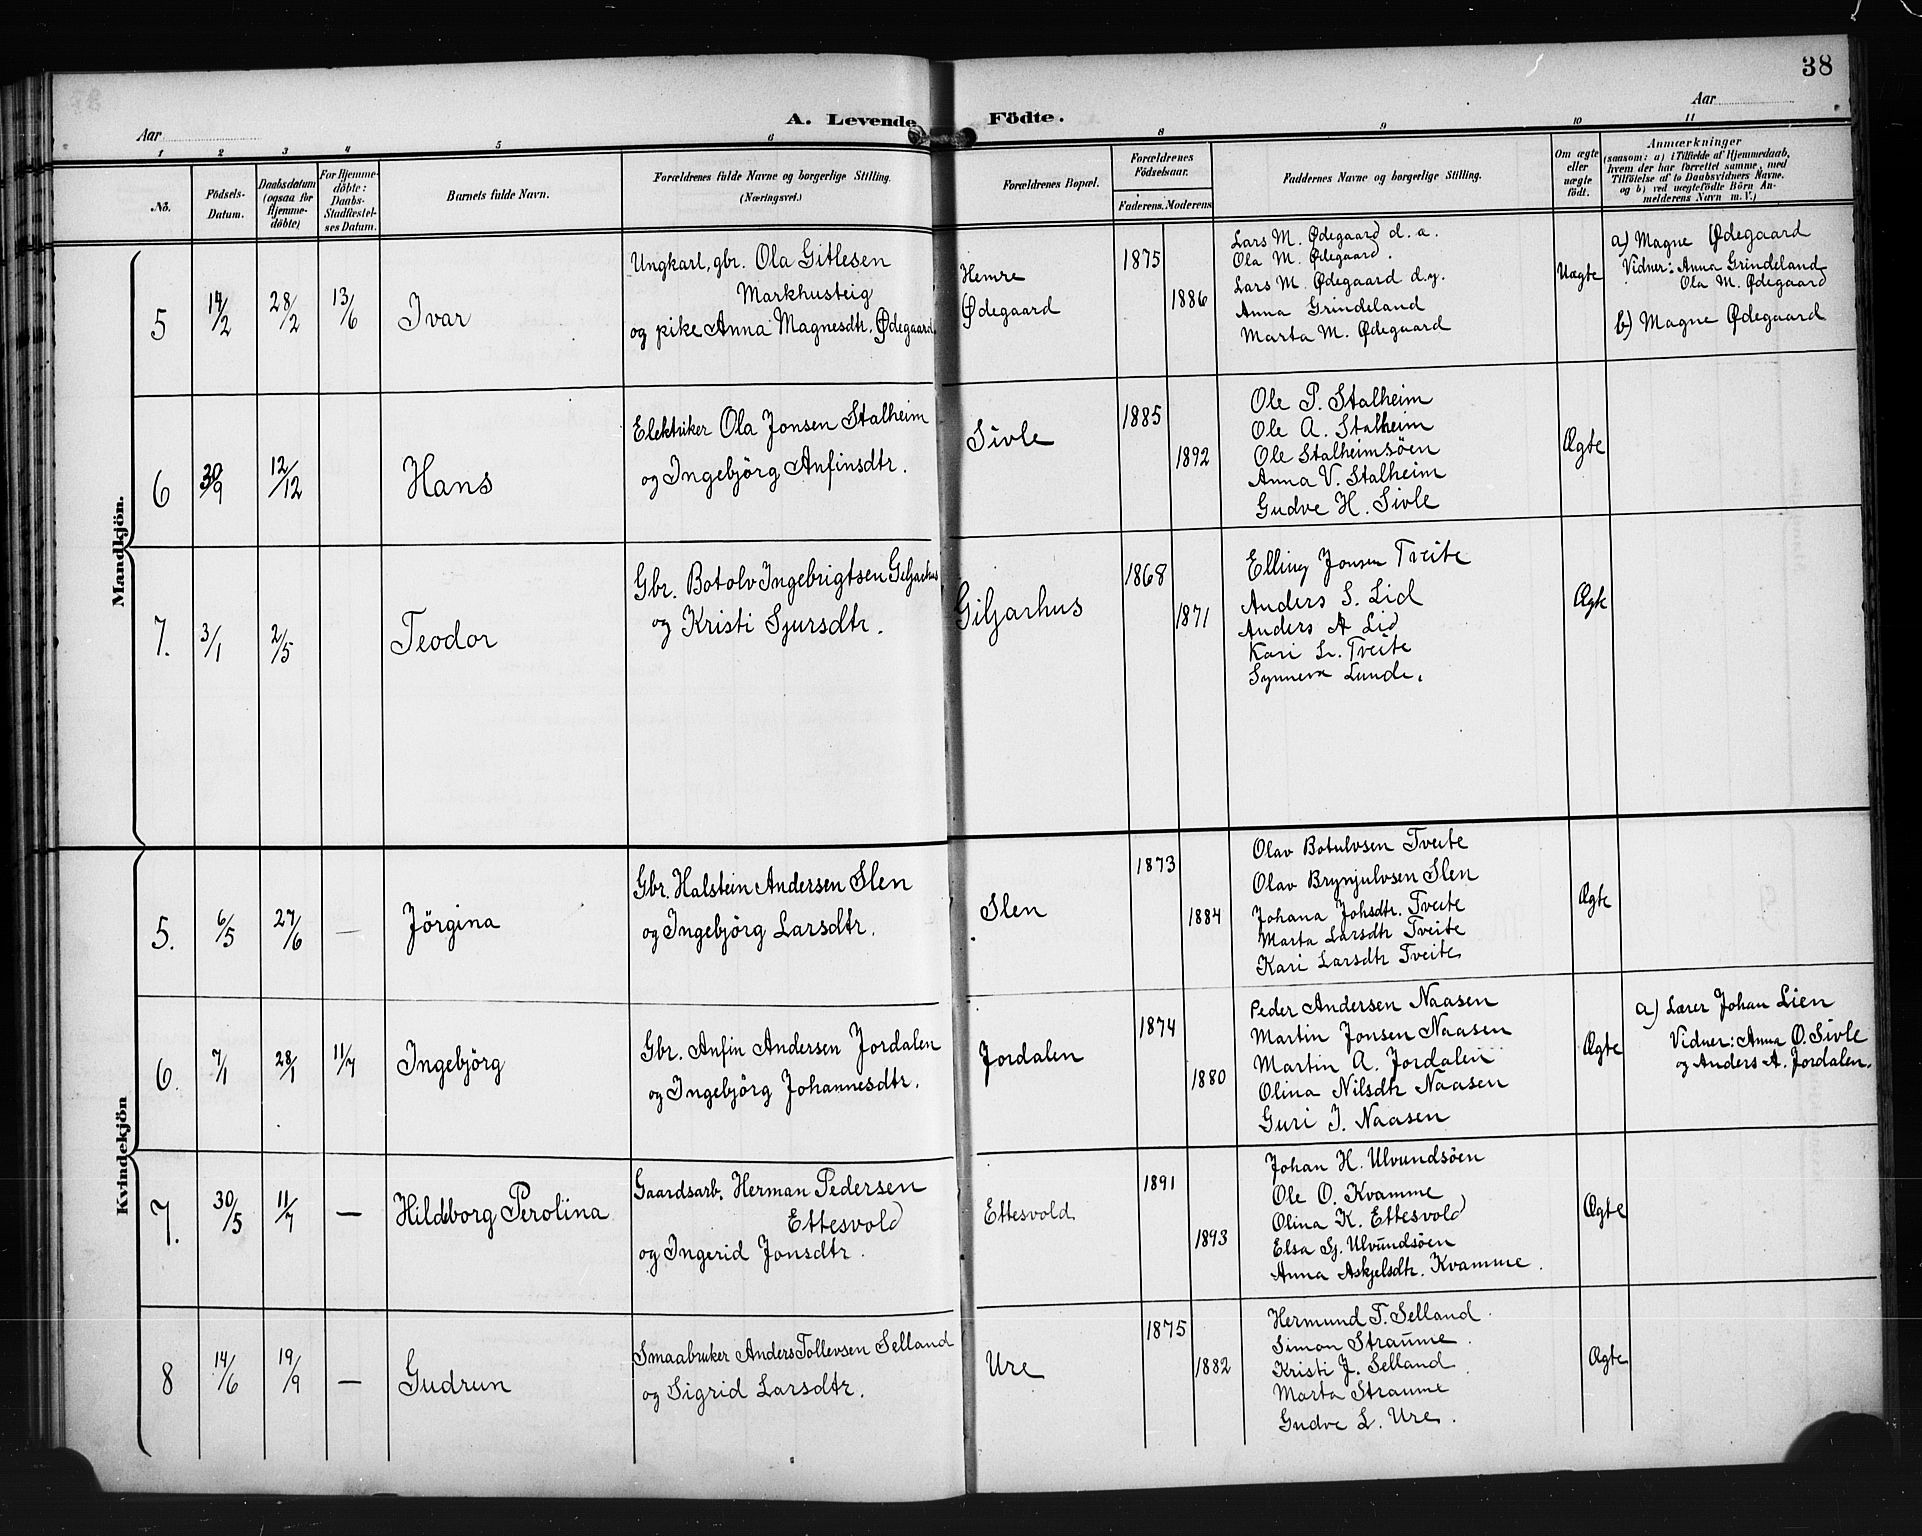 38
Aar
A. Levende Födte.
Aar
1 2 3 4 5 6 8 9 10 11
No.
Födsels-
Datum.
Daabsdatum
(ogsaa for
Hjemme-
döbte)
For Hjemme-
döbte:
Daabs-
Stadfæstel-
ses Datum.
Barnets fulde Navn.
Forældrenes fulde Navne og borgerlige Stilling.
(Næringsvei.)
Forældrenes Bopæl.
Forældrenes
Födselsaar.
Faderens. Moderens
Faddernes Navne og borgerlige Stilling.
Om ægte
eller
uægte
födt.
Anmærkninger
(saasom: a) i Tilfælde af Hjemmedaab,
hvem der har forrettet samme, med
Tilföielse af to Daabsvidners Navne.
og b) ved uægtefödte Börn An-
melderens Navn m. V.)
Mandkjön.
5
14/2
28/2
13/6
Ivar
Ungkarl, gbr. Ola Gitlesen
Markhusteig
og pike Anna Magnesdtr. Ødegaard
Hemre
Ødegaard
1875
1886
Lars M. Ødegaard d. a.
Ola M. Ødegaard.
Lars M. Ødegaard d.y.
Anna Grindeland
Marta M. Ødegaard
Uægte
a) Magne Ødegaard
Vidner: Anna Grindeland
Ola M. Ødegaard
b) Magne Ødegaard
6
30/9
12/12
Hans
Elektriker Ola Jonsen Stalheim
og Ingebjörg Anfinsdtr.
Sivle
1885
1892
Ole P. Stalheim
Ole A. Stalheim
Ole Stalheimsöen
Anna V. Stalheim
Gudve H. Sivle
Ægte
7.
3/1
2/5
Teodor
Gbr. Botolv Ingebrigtsen Giljarhus
og Kristi Sjursdtr.
Giljarhus
1868
1871
Elling Jonsen Tveite
Anders S. Lid
Anders A Lid
Kari L. Tveite
Synneva Lunde.
Ægte
Kvindekjön
5.
6/5
27/6
—
Jörgina
Gbr. Halstein Andersen Slen
og Ingebjörg Larsdtr.
Slen
1873
1884
Olav Botulvsen Tveite
Olav Brynjulvsen Slen
Johana Johsdtr. Tveite
Marta Larsdtr Tveite
Kari Larsdtr Tveite
Ægte
6.
7/1
28/1
11/7
Ingebjörg
Gbr. Anfin Andersen Jordalen
og Ingebjörg Johannesdtr.
Jordalen
1874
1880
Peder Andersen Naasen
Martin Jonsen Naasen
Martin A. Jordalen
Olina Nilsdtr Naasen
Guri J. Naasen
Ægte
a) Lærer Johan Lien
Vidner: Anna O. Sivle
og Anders A. Jordalen.
7.
30/5
11/7
—
Hildeborg Perolina
Gaardsarb. Herman Pedersen
Ettesvold
og Ingerid Jonsdtr.
Ettesvold
1891
1893
Johan H. Ulvundsöen
Ole O. Kvamme
Olina K. Ettesvold
Elsa Sj. Ulvundsöen
Anna Askjelsdtr. Kvamme.
Ægte
8
14/6
19/9
—
Gudrun
Smaabruker Anders Tollevsen Selland
og Sigrid Larsdtr.
Ure
1875
1882
Hermund T. Selland.
Simon Straume.
Kristi J. Selland.
Marta Straume
Gudve L. Ure.
Ægte